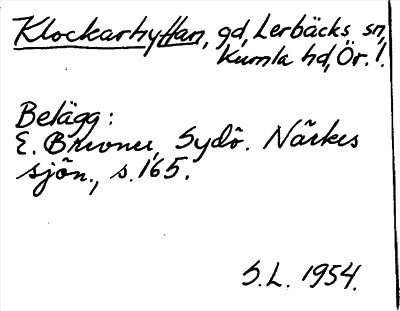 Klockarhyttan, gd, Lerbäcks sn,
Kumla hd, Ör. !.
Belägg:
E. Bruner, Sydö. Närkes
sjön., s. 165.
S.L. 1954.